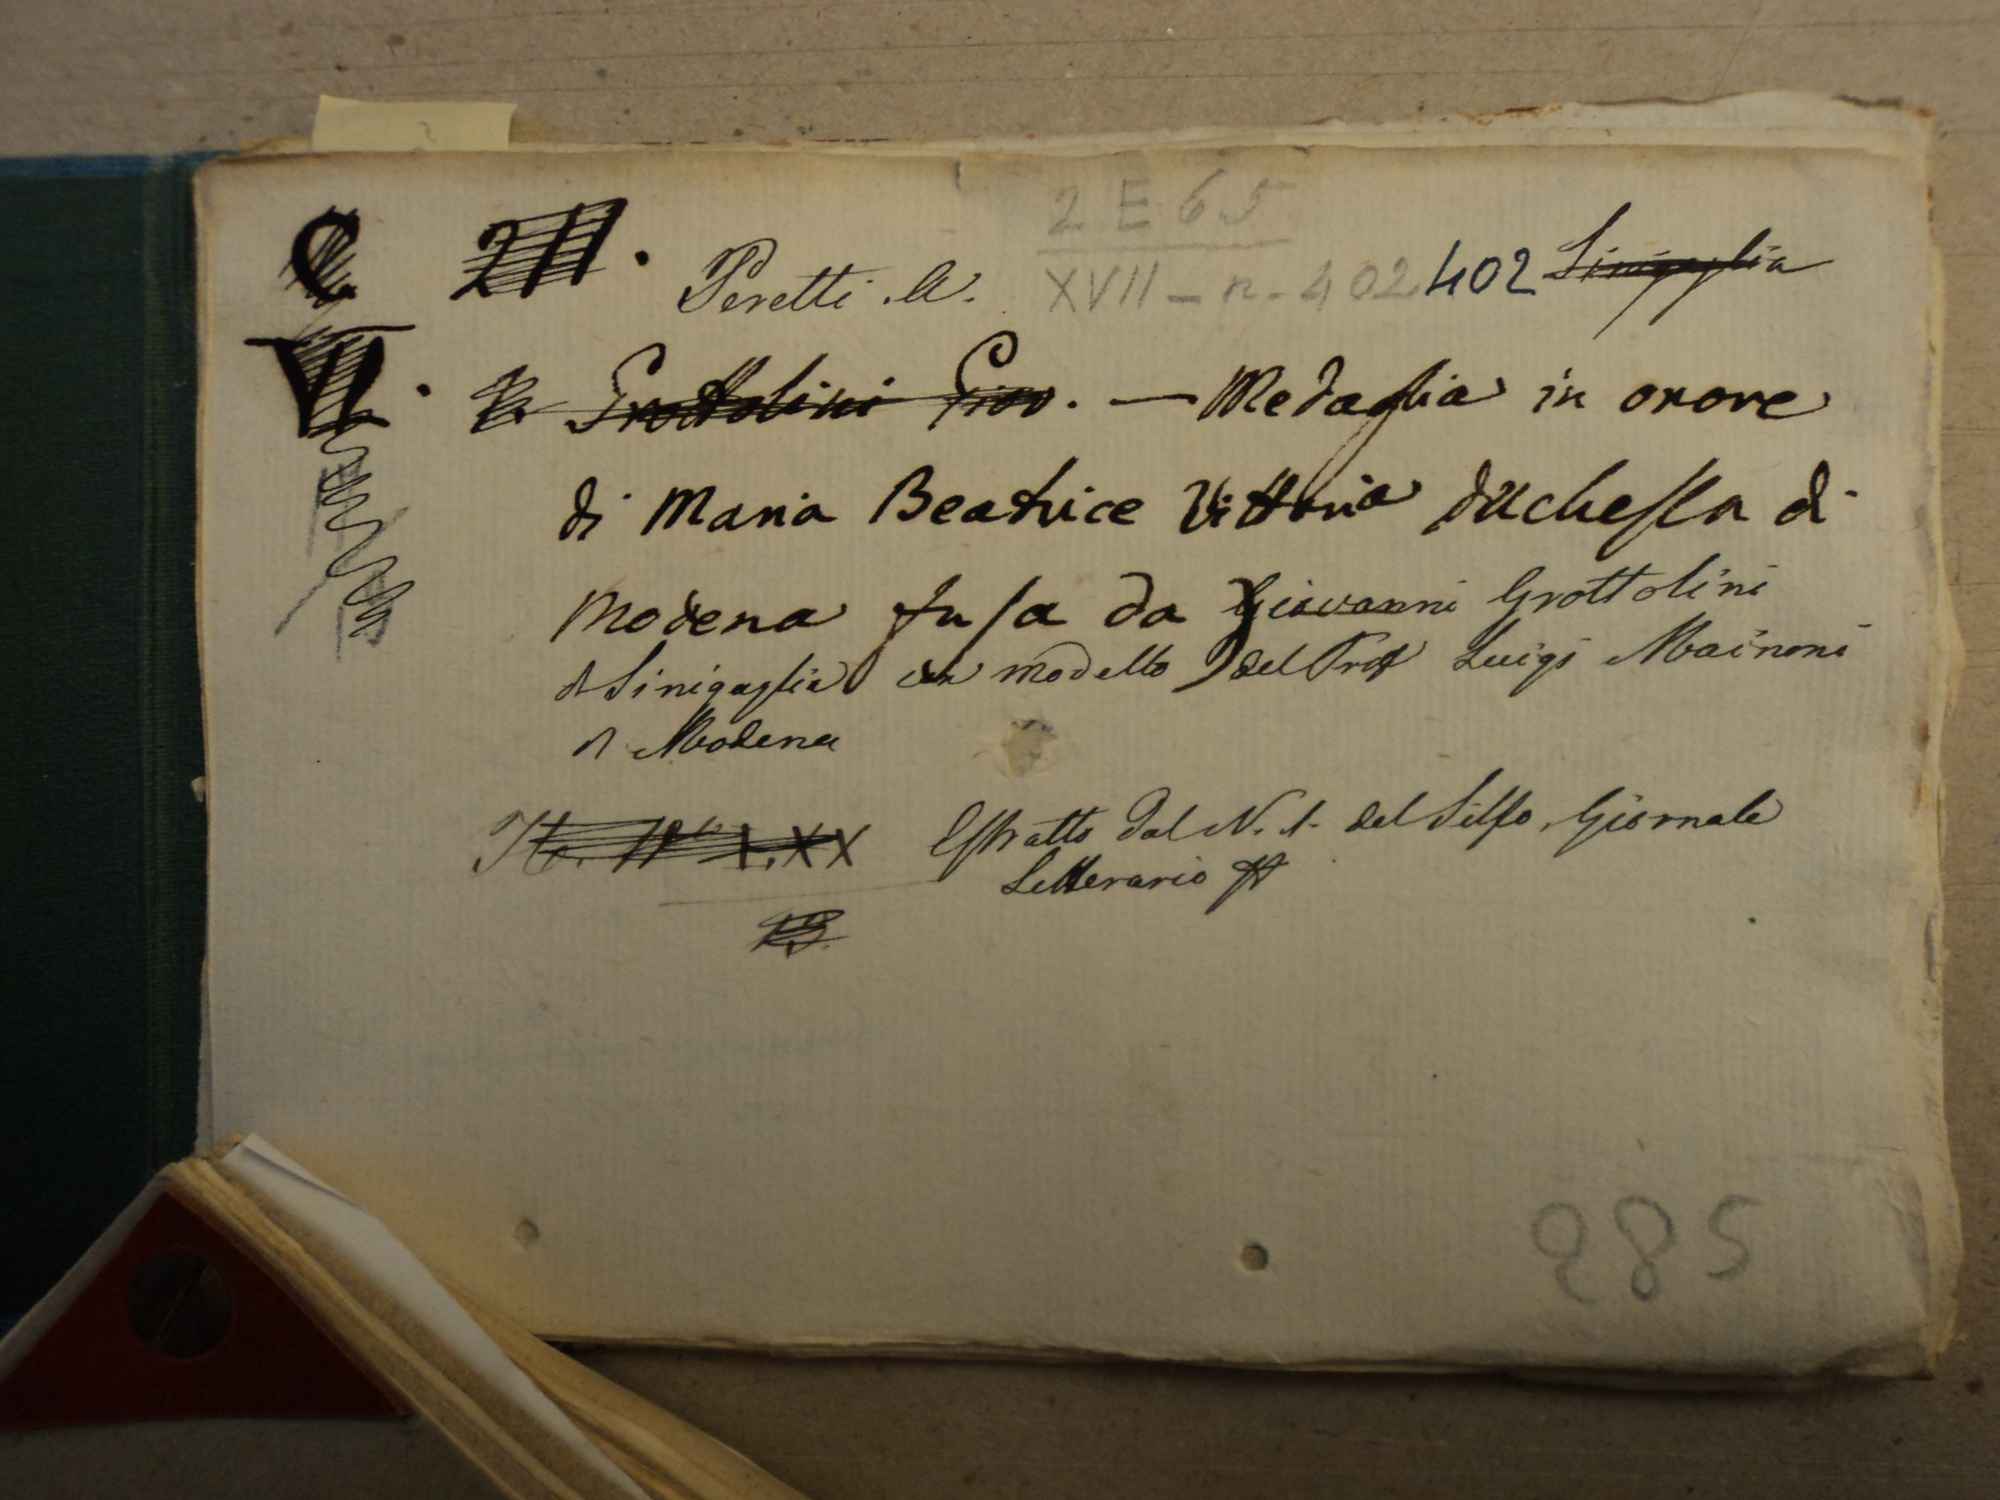 2 E 65
C 211. Peretti A. XVII - n. 402 402 Sinigaglia
VI. Grottolini Giov. — Medaglia in onore
di Maria Beatrice Vittoria duchessa di
Modena fusa da Giovanni Grottolini
di Sinigaglia modello del Prof Luigi Mainoni
di Modena
XX Estratto dal N. 1. del Silfo, Giornale
Letterario
13.
285